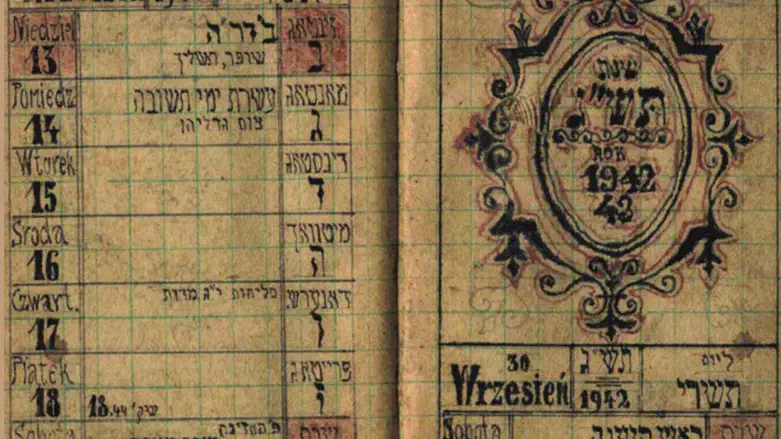 Niedziela ב' דר"ה זונטאג
13 שופר, תשליך ב
Poniedz עשרת ימי תשובה מאנטאג
14 צום גדליהו ג
Wtorek דינסטאג
15 ד
Środa מיטוואך
16 ה
Czwart. סליחות י"ג מדות דאנערש.
17 ו
Piątek פרייטאג
18 18.44 ז
Sobota שבת
שנת
ROK
1942
30 תש"ג ליום
Wrzesień 1942 תשרי
Sobota ראש השנה שבת